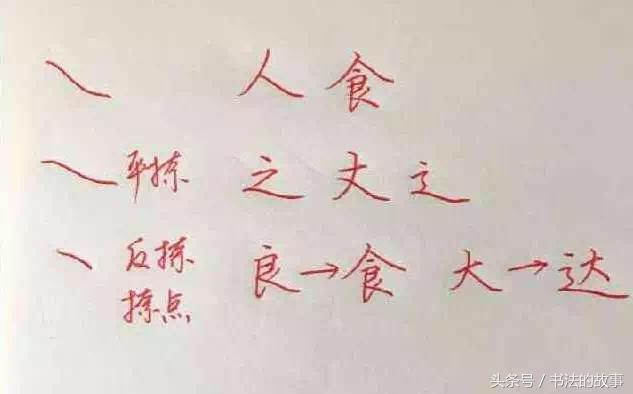 ㇏ 人 食
㇏ 平捺 之 丈 辶
㇏ 反捺 良→食 大→达
捺点
头条号 / 书法的故事